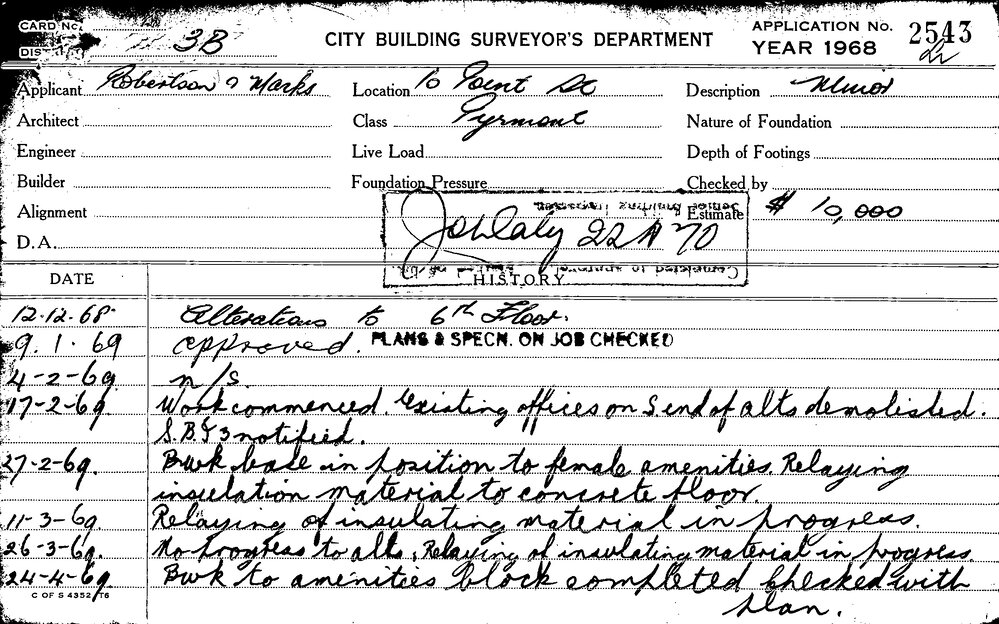 CARD No.
DIST. 3B
CITY BUILDING SURVEYOR'S DEPARTMENT
APPLICATION No. 2543
YEAR 1968
Applicant Robertson & Marks Location 10 Point St Description Minor
Architect Class Pyrmont Nature of Foundation
Engineer Live Load Depth of Footings
Builder Foundation Pressure Checked by
Alignment Estimate $ 10,000
D.A.
Senior Building Inspector
22 70
Completed to approval
HISTORY
DATE
12.12.68. Alterations to 6th Floor.
9.1.69 approved. PLANS & SPECN. ON JOB CHECKED
4-2-69 n/s.
17-2-69 Work commenced. Existing offices on S end of alts demolished.
S.B.I 3 notified.
27-2-69. Bwk base in position to female amenities. Relaying
insulation material to concrete floor.
11-3-69. Relaying of insulating material in progress.
26-3-69. No progress to alts, Relaying of insulating material in progress.
24-4-69 Bwk to amenities block completed checked with
plan.
C OF S 4352/T6